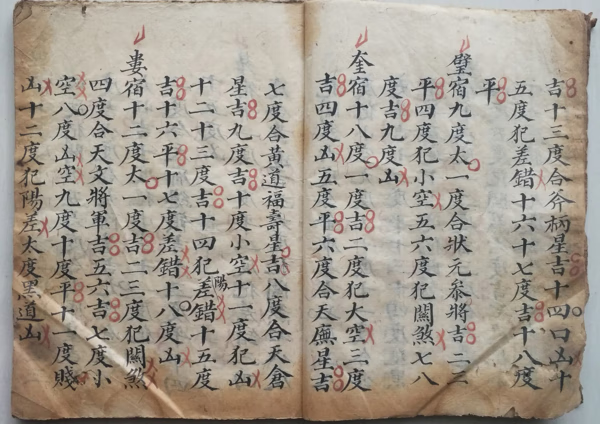 吉十三度合斧柄星吉十四口凶十
五度犯差錯十六十七度吉十八度
平
璧宿九度太一度合狀元叅將吉二三
平四度犯小空五六度犯關煞七八
度吉九度凶
奎宿十八度一度吉二度犯大空三度
吉四度凶五度平六度合天廡星吉
七度合黃道福壽星吉八度合天倉
星吉九度吉十度小空十一度犯凶
十二十三度吉十四犯陽差錯十五度
吉十六平十七度差錯十八度凶
婁宿十二度太一度吉二三度犯關煞
四度合天文將軍吉五六吉七度小
空八度凶空九度十度平十一度賤
凶十二度犯陽差太度黑道凶